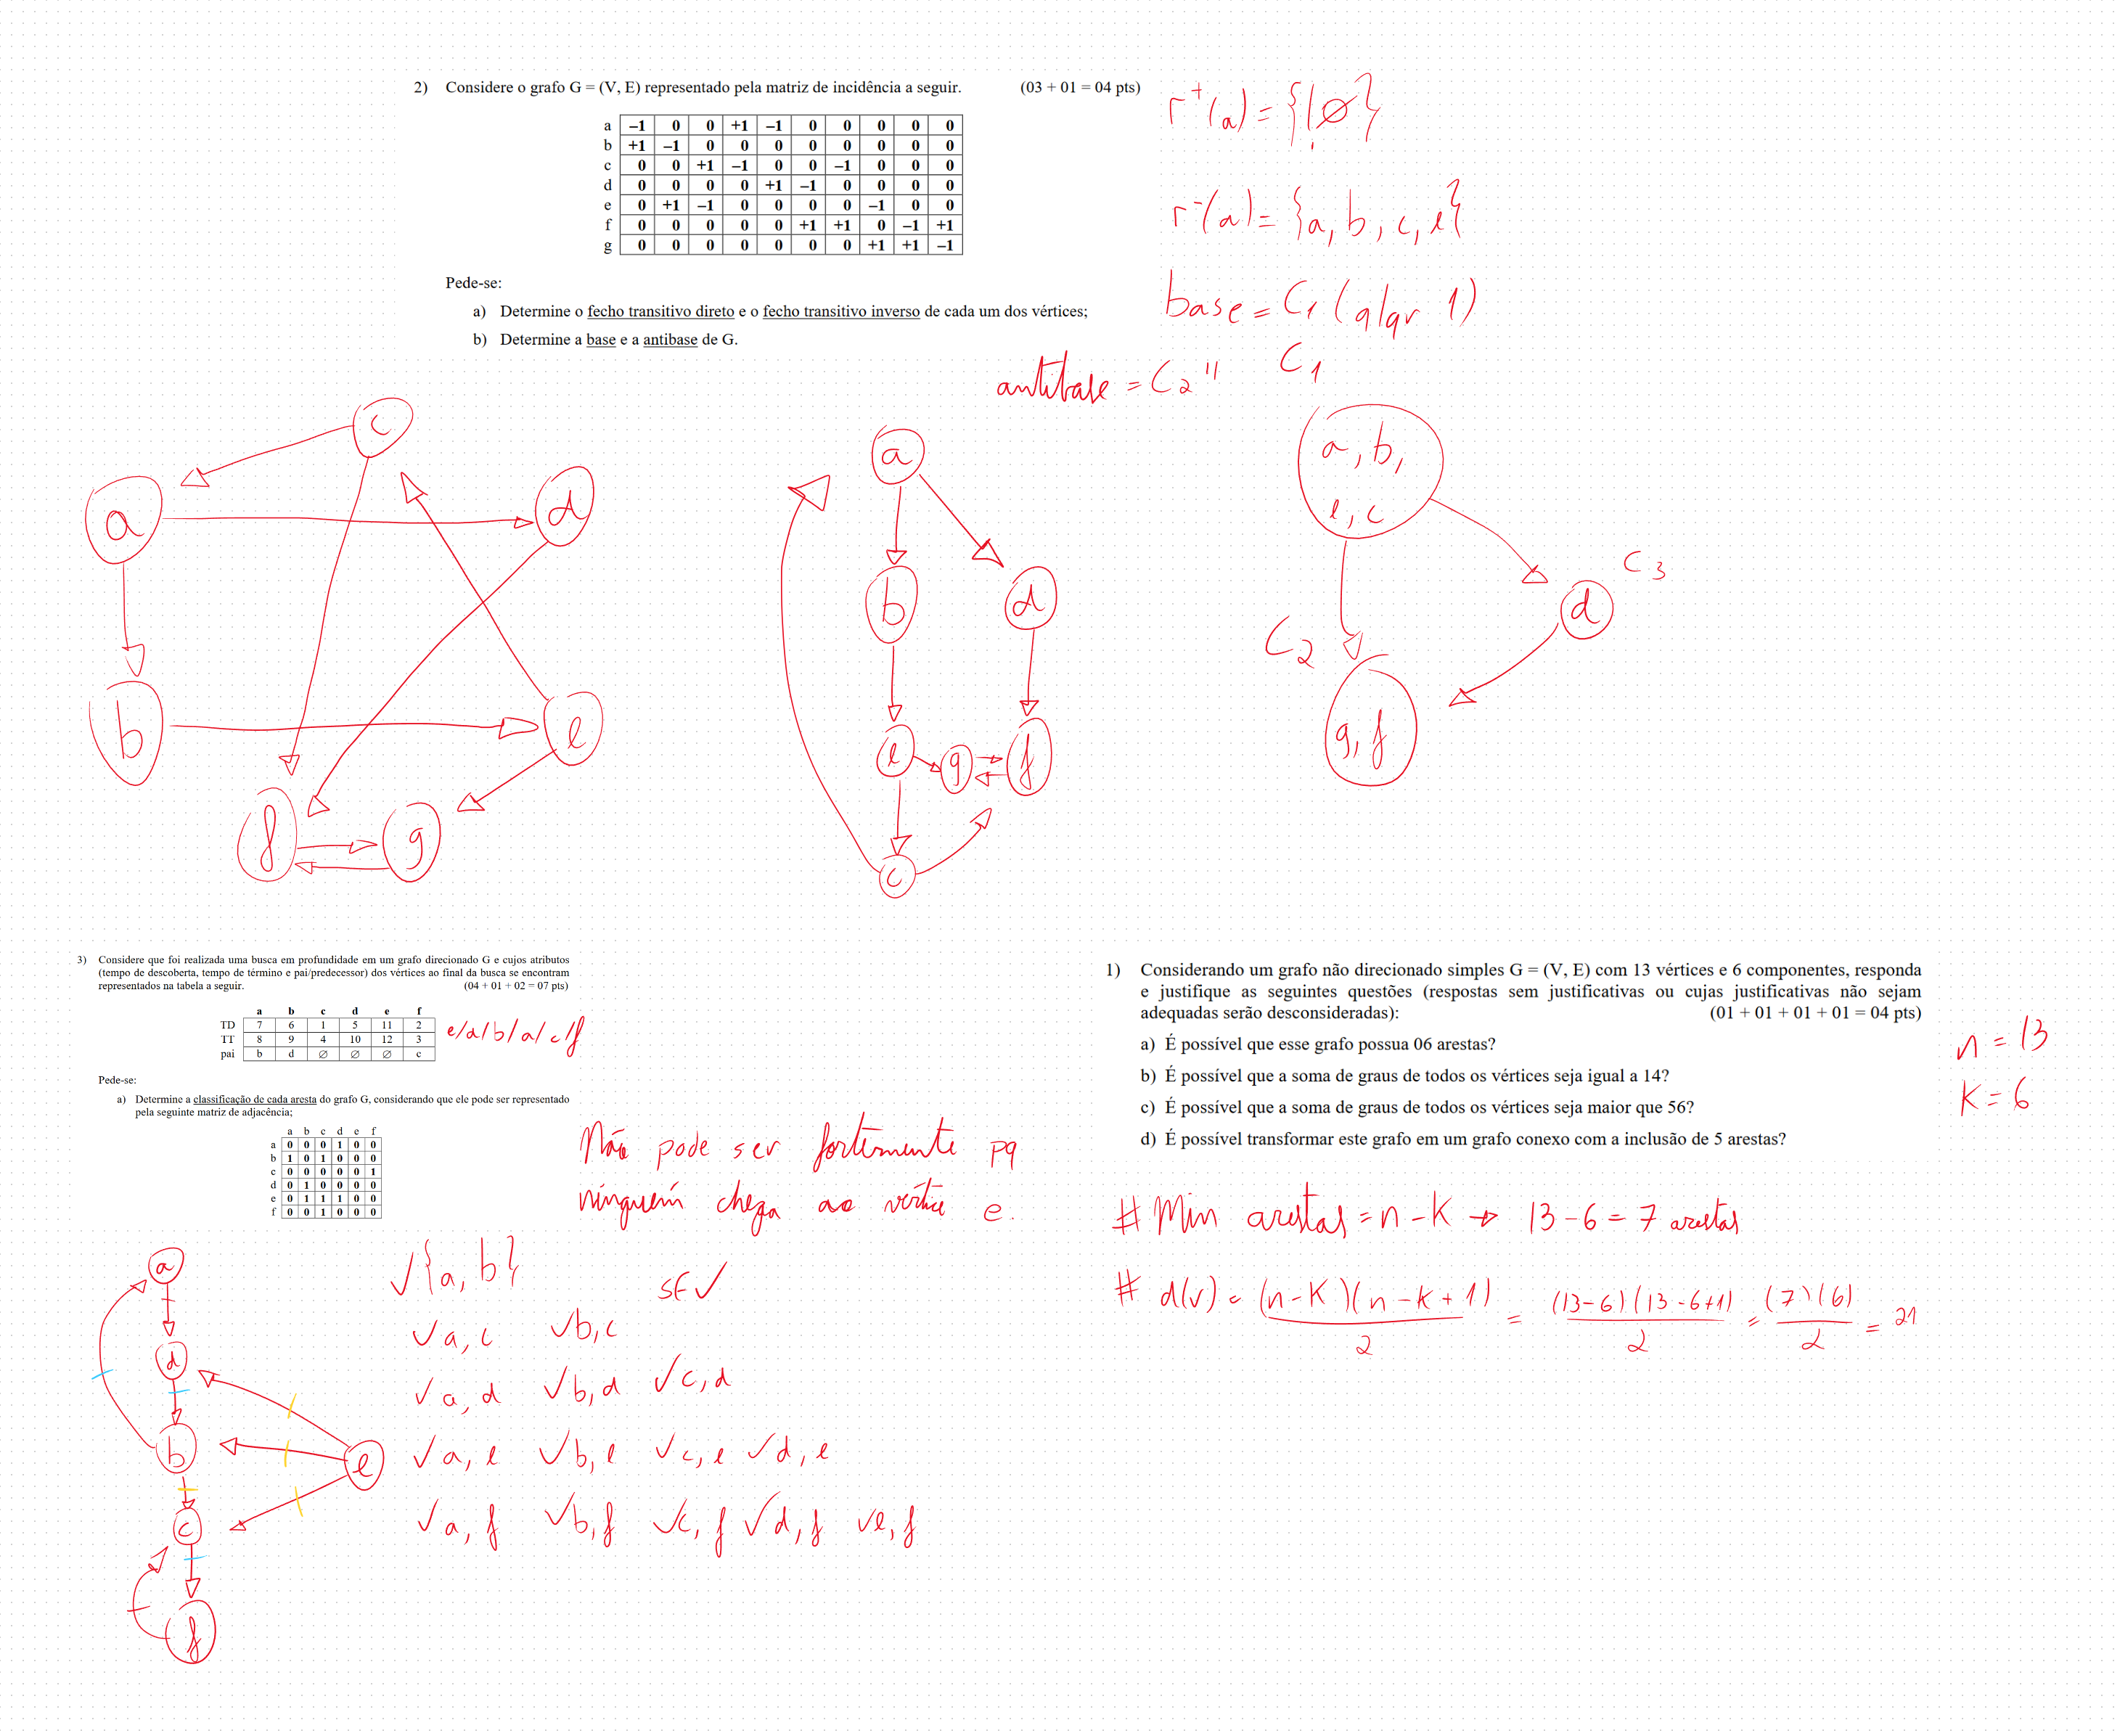 2) Considere o grafo G = (V, E) representado pela matriz de incidência a seguir. (03 + 01 = 04 pts)
a −1 0 0 +1 −1 0 0 0 0 0
b +1 −1 0 0 0 0 0 0 0 0
c 0 0 +1 −1 0 0 −1 0 0 0
d 0 0 0 0 +1 −1 0 0 0 0
e 0 +1 −1 0 0 0 0 −1 0 0
f 0 0 0 0 0 +1 +1 0 −1 +1
g 0 0 0 0 0 0 0 +1 +1 −1
Pede-se:
a) Determine o fecho transitivo direto e o fecho transitivo inverso de cada um dos vértices;
b) Determine a base e a antibase de G.
r⁺(a) = { ∅ }
r⁻(a) = {a, b, c, e}
base = C1 (q/qr 1)
antibase = C2 "
c
a
d
b
e
f
g
a
b
d
e
g
f
c
C1
a, b,
e, c
C3
d
C2
g, f
3) Considere que foi realizada uma busca em profundidade em um grafo direcionado G e cujos atributos
(tempo de descoberta, tempo de término e pai/predecessor) dos vértices ao final da busca se encontram
representados na tabela a seguir. (04 + 01 + 02 = 07 pts)
a b c d e f
TD 7 6 1 5 11 2
TT 8 9 4 10 12 3
pai b d ∅ ∅ ∅ c
e/d/b/a/c/f
Pede-se:
a) Determine a classificação de cada aresta do grafo G, considerando que ele pode ser representado
pela seguinte matriz de adjacência;
a b c d e f
a 0 0 0 1 0 0
b 1 0 1 0 0 0
c 0 0 0 0 0 1
d 0 1 0 0 0 0
e 0 1 1 1 0 0
f 0 0 1 0 0 0
Não pode ser fortemente pq
ninguém chega ao vértice e.
a
d
b
e
c
f
✓{a, b}
SF✓
✓a, c ✓b, c
✓a, d ✓b, d ✓c, d
✓a, e ✓b, e ✓c, e ✓d, e
✓a, f ✓b, f ✓c, f ✓d, f ✓e, f
1) Considerando um grafo não direcionado simples G = (V, E) com 13 vértices e 6 componentes, responda
e justifique as seguintes questões (respostas sem justificativas ou cujas justificativas não sejam
adequadas serão desconsideradas): (01 + 01 + 01 + 01 = 04 pts)
a) É possível que esse grafo possua 06 arestas?
b) É possível que a soma de graus de todos os vértices seja igual a 14?
c) É possível que a soma de graus de todos os vértices seja maior que 56?
d) É possível transformar este grafo em um grafo conexo com a inclusão de 5 arestas?
n = 13
K = 6
# Min arestas = n - K → 13 - 6 = 7 arestas
# d(v) = (n-K)(n-K+1) / 2 = (13-6)(13-6+1) / 2 = (7)(6) / 2 = 21